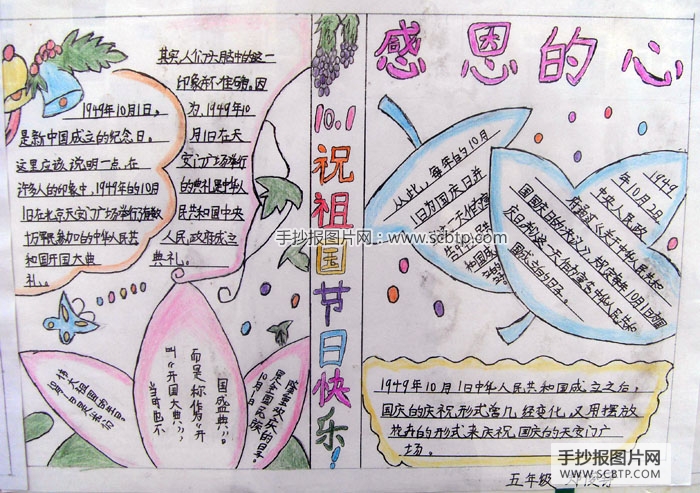 感恩的心
10.1祝祖国节日快乐!
1949年10月1日,
是新中国成立的纪念日。
这里应该说明一点,在
许多人的印象中,1949年的10月
1日在北京天安门广场举行有数
十万军民参加的中华人民共
和国开国大典
礼。
其实,人们头脑中的这一
印象并不准确,因
为,1949年10
月1日在天
安门广场举行
的典礼是中华人
民共和国中央
人民,政府成立
典礼。
伟大盛国的日
当时也不
叫“开国大典”,
而是称作为“开
国盛典”。
10月1日
是全国民族
隆重欢庆的日子。
从此,每年的10月
1日为国庆日并
1949
年10月2日,
中央人民政
国国庆日的决议》规定每年10月1日为国
国成立的日子。
1949年10月1日中华人民共和国成立之后,
国庆的庆祝形式曾几经变化,又用摆放
花卉的形式来庆祝,国庆的天安门广
场。
五年级
手抄报图片网:www.scbtp.com
手抄报图片网
WWW.SCBTP.COM